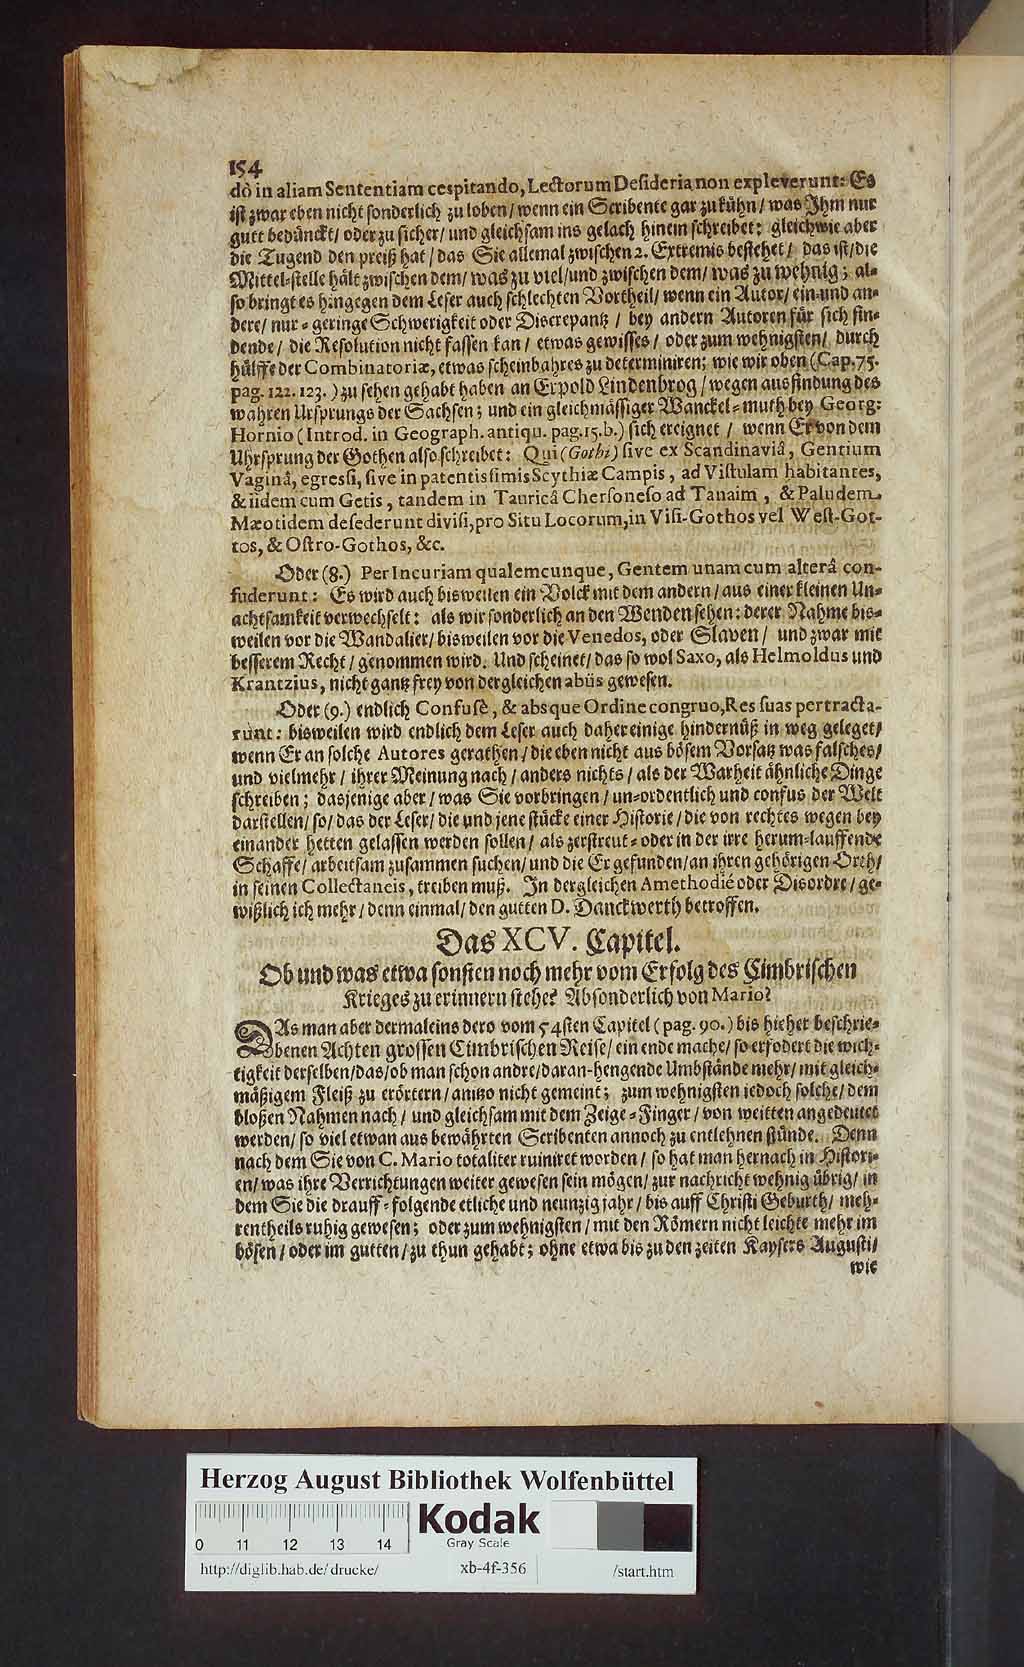 154
dò in aliam Sententiam cespitando, Lectorum Desideria non expleverunt: Es
ist zwar eben nicht sonderlich zu loben/ wenn ein Scribente gar zu kühn/ was Ihm nur
gutt bedünckt/ oder zu sicher/ und gleichsam ins gelach hinein schreibet: gleichwie aber
die Tugend den preiß hat/ das Sie allemal zwischen 2. Extremis bestehet/ das ist/die
Mittel-stelle hält zwischen dem/ was zu viel/und zwischen dem/ was zu wehnig; al-
so bringt es hingegen dem Leser auch schlechten Vortheil/ wenn ein Autor/ ein-und an-
dere/ nur-geringe Schwerigkeit oder Discrepantz/ bey andern Autoren für sich fin-
dende/ die Resolution nicht fassen kan/ etwas gewisses/ oder zum wehnigsten/ durch
hülffe der Combinatoriæ, etwas scheinbahres zu determiniren; wie wir oben (Cap.75.
pag. 122. 123.) zu sehen gehabt haben an Erpold Lindenbrog/ wegen ausfindung des
wahren Ursprungs der Sachsen; und ein gleichmässiger Wanckel-muth bey Georg:
Hornio (Introd. in Geograph. antiqu. pag.15.b.) sich ereignet/ wenn Er von dem
Uhrsprung der Gothen also schreibet: Qui (Gothi) sive ex Scandinaviâ, Gentium
Vaginâ, egressi, sive in patentissimis Scythiæ Campis, ad Vistulam habitantes,
& iidem cum Getis, tandem in Tauricâ Chersoneso ad Tanaim, & Paludem
Mæotidem desederunt divisi, pro Situ Locorum, in Visi-Gothos vel West-Got-
tos, & Ostro-Gothos, &c.
Oder (8.) Per Incuriam qualemcunque, Gentem unam cum alterâ con-
fuderunt: Es wird auch bisweilen ein Volck mit dem andern/ aus einer kleinen Un-
achtsamkeit verwechselt: als wir sonderlich an den Wenden sehen: derer Nahme bis-
weilen vor die Wandalier/ bisweilen vor die Venedos, oder Slaven/ und zwar mit
besserem Recht/ genommen wird. Und scheinet/ das so wol Saxo, als Helmoldus und
Krantzius, nicht gantz frey von dergleichen abûs gewesen.
Oder (9.) endlich Confusè, & absque Ordine congruo, Res suas pertracta-
runt: bisweilen wird endlich dem Leser auch daher einige hindernüß in weg geleget/
wenn Er an solche Autores gerathen/ die eben nicht aus bösem Vorsatz was falsches/
und vielmehr/ ihrer Meinung nach/ anders nichts/ als der Warheit ähnliche Dinge
schreiben; dasjenige aber/ was Sie vorbringen/ un-ordentlich und confus der Welt
darstellen/ so/ das der Leser/ die und jene stücke einer Historie/ die von rechtes wegen bey
einander hetten gelassen werden sollen/ als zerstreut-oder in der irre herum-lauffende
Schaffe/ arbeitsam zusammen suchen/ und die Er gefunden/ an ihren gehörigen Orth/
in seinen Collectaneis, treiben muß. In dergleichen Amethodie oder Disordre/ ge-
wißlich ich mehr/ denn einmal/ den gutten D. Danckwerth betroffen.
Das XCV. Capitel.
Ob und was etwa sonsten noch mehr vom Erfolg des Cimbrischen
Krieges zu erinnern stehe? Absonderlich von Mario?
DAs man aber dermaleins dero vom 54sten Capitel (pag. 90.) bis hieher beschrie-
benen Achten grossen Cimbrischen Reise/ ein ende mache/ so erfodert die wich-
tigkeit derselben/das/ob man schon andre/daran-hengende Umbstände mehr/ mit gleich-
mäßigem Fleiß zu erörtern/ anitzo nicht gemeint; zum wehnigsten iedoch solche/ dem
bloßen Nahmen nach/ und gleichsam mit dem Zeige-Finger/ von weitten angedeutet
werden/ so viel etwan aus bewährten Scribenten annoch zu entlehnen stünde. Denn
nach dem Sie von C. Mario totaliter ruiniret worden/ so hat man hernach in Histori-
en/ was ihre Verrichtungen weiter gewesen sein mögen/ zur nachricht wehnig übrig/ in
dem Sie die drauff-folgende etliche und neunzig jahr/ bis auff Christi Geburth/ meh-
rentheils ruhig gewesen; oder zum wehnigsten/ mit den Römern nicht leichte mehr im
bösen/ oder im gutten/ zu thun gehabt; ohne etwa bis zu den zeiten Kaysers Augusti/
wie
Herzog August Bibliothek Wolfenbüttel
0 11 12 13 14
Kodak
Gray Scale
http://diglib.hab.de/drucke/ xb-4f-356 /start.htm